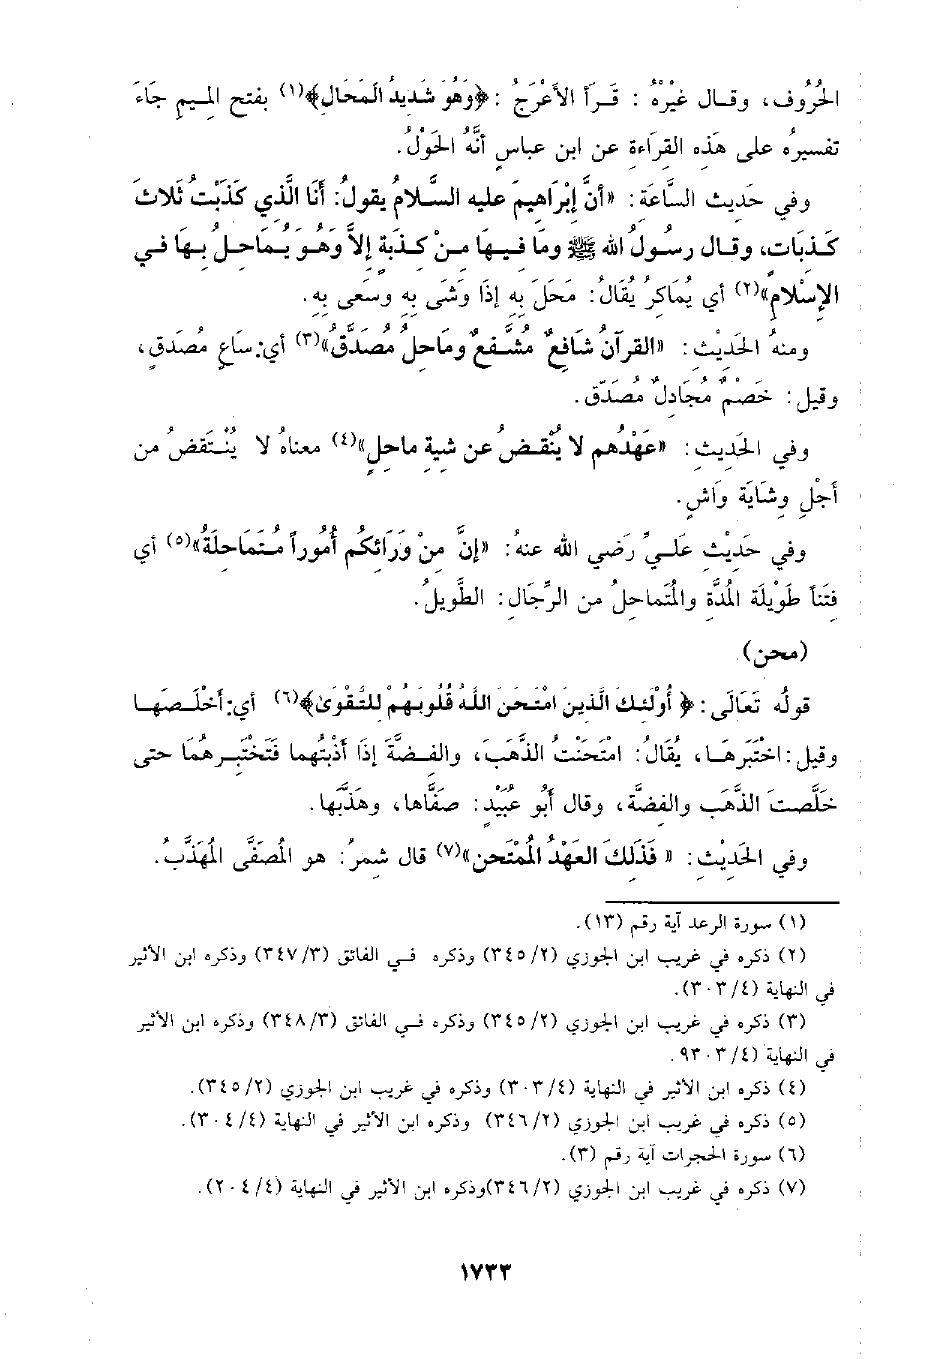 الحُرُوف، وقال غَيْرُهُ : قَرَأَ الأَعْرَجُ : ﴿وَهُوَ شَدِيدُ المَحَالِ﴾(١) بفتح الميم جَاءَ
تفسيرُه على هَذِه القرَاءةِ عن ابن عباسٍ أنَّهُ الحَوْلُ.
وفي حَديث السَّاعَة: «أنَّ إبْرَاهيمَ عليه السَّلامُ يقولُ: أَنَا الَّذي كَذَبْتُ ثَلاثَ
كَذبَات، وقال رسولُ الله ﷺ ومَا فيهَا منْ كذَبة إلاَّ وَهُوَ يُمَاحلُ بهَا في
الإسْلامِ»(٢) أي يُمَاكرُ يُقَالُ: مَحَلَ بِهِ إذَا وَشَى بِهِ وسَعَى بِهِ.
ومنهُ الحَدِيْثِ: «القرآنُ شَافعٌ مُشَفَّعٌ ومَاحلُ مُصَدَّقٌ»(٣) أي:سَاعٍ مُصَدَق،
وقيل: خَصْمٌ مُجَادلٌ مُصَدَّق.
وفي الحَديثِ: «عَهْدُهم لا يُنْقَضُ عن شيةِ ماحلٍ»(٤) معناهُ لا يُنْتَقضُ من
أجْلِ وِشَايَة وَاشٍ.
وفي حَديْثِ عَلَيٍّ رَضي الله عنهُ: «إنَّ منْ وَرَائكُم أُمُوراً مُتَمَاحلَةٌ»(٥) أي
فتَناً طَوْيلَة المُدَّة والمُتَماحلُ من الرِّجَال: الطَّويلُ.
(محن)
قولُه تَعَالَى: ﴿أُوْلَئكَ الَّذينَ امْتَحَنَ اللَّهُ قُلُوبَهُمْ للتَّقْوَىٰ﴾(٦) أي:أخْلَصَهَا
وقيل:اخْتَبرَهَا، يُقَالُ: امْتَحَنْتُ الذَّهَبَ، والفضَّةَ إذَا أذَبْتُهما فَتَخْتَبرهُمَا حتى
خَلَّصتَ الذَّهَب والفضَّة، وقال أبُو عُبَيْدٍ: صَفَّاها، وهَذَّبها.
وفي الحَدِيْثِ: « فَذَلكَ العَهْدُ المُمْتَحَن»(٧) قال شمرُ: هو المُصَفَّى المُهَذَّبُ.
(١) سورة الرعد آية رقم (١٣).
(٢) ذكره في غريب ابن الجوزي (٣٤٥/٢) وذكره في الفائق (٣٤٧/٣) وذكره ابن الأثير
في النهاية (٣٠٣/٤).
(٣) ذكره في غريب ابن الجوزي (٣٤٥/٢) وذكره في الفائق (٣٤٨/٣) وذكره ابن الأثير
في النهاية (٩٣٠٣/٤.
(٤) ذكره ابن الأثير في النهاية (٣٠٣/٤) وذكره في غريب ابن الجوزي (٣٤٥/٢).
(٥) ذكره في غريب ابن الجوزي (٣٤٦/٢) وذكره ابن الأثير في النهاية (٣٠٤/٤).
(٦) سورة الحجرات آية رقم (٣).
(٧) ذكره في غريب ابن الجوزي (٣٤٦/٢)وذكره ابن الأثير في النهاية (٢٠٤/٤).
١٧٣٣